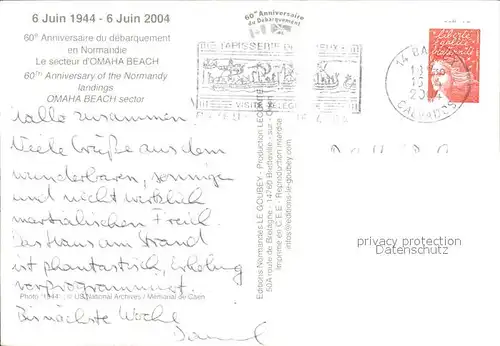 6 Juin 1944 - 6 Juin 2004
60e Anniversaire du débarquement
en Normandie
Le secteur d'OMAHA BEACH
60TH Anniversary of the Normandy
landings
OMAHA BEACH sector
Hallo zusammen!
Viele Grüße aus dem
wunderbaren, sonnigen
und nicht wirklich
martialischen
Das Haus am Strand
ist phantastisch, Erholung
vorprogrammiert.
Photo "1944" : © US National Archives / Mémorial de Caen
Bis nächste Woche
60e Anniversaire
du Débarquement
TAPISSERIE DE BAYEUX
Editions Normandes LE GOUBEY - Production LECONTE
50A route de Bretagne - 14760 Bretteville - sur - Odon
Imprimé en C.E.E. - Reproduction interdite
infos@editions-le-goubey.com
14 BAYEUX
2004
CALVADOS
liberté
égalité
fraternité
privacy protection
Datenschutz